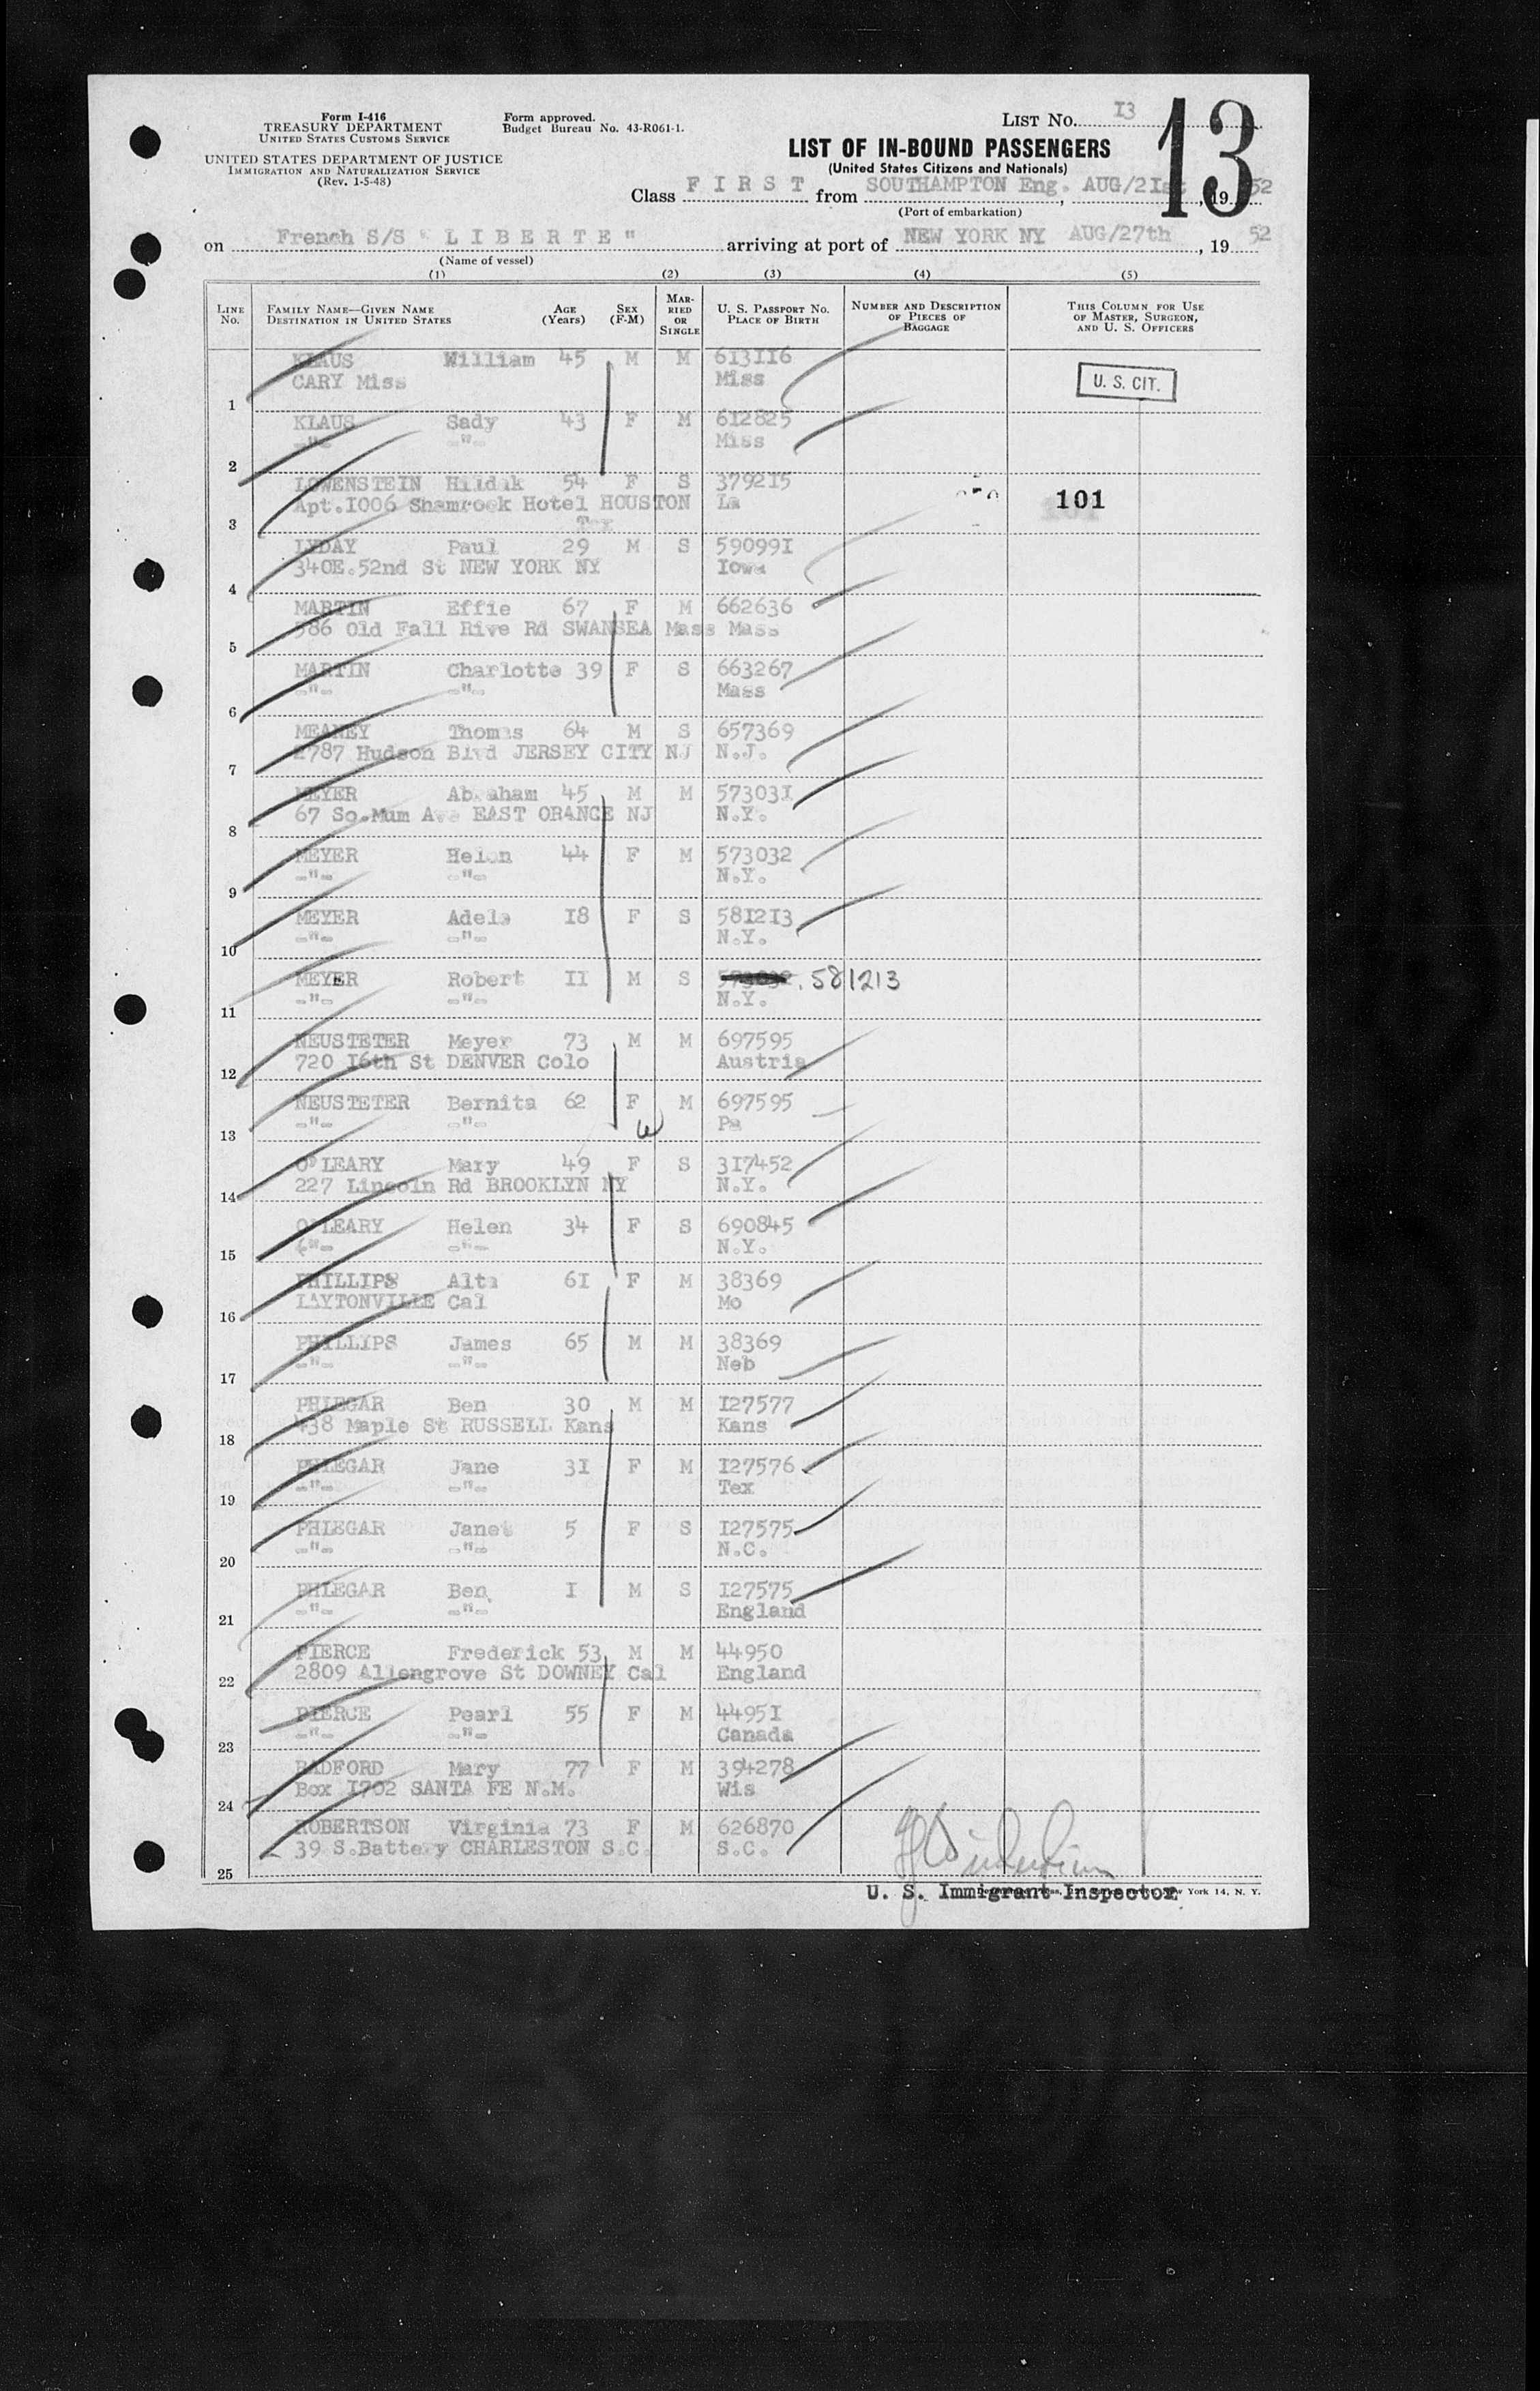 Form I-416
TREASURY DEPARTMENT
UNITED STATES CUSTOMS SERVICE
UNITED STATES DEPARTMENT OF JUSTICE
IMMIGRATION AND NATURALIZATION SERVICE
(Rev. 1-5-48)
Form approved.
Budget Bureau No. 43-R061-1.
LIST No. I3
13
LIST OF IN-BOUND PASSENGERS
(United States Citizens and Nationals)
Class F I R S T from SOUTHAMPTON Eng. AUG/2Ist, 1952
(Port of embarkation)
on French S/S " L I B E R T E " arriving at port of NEW YORK NY AUG/27th, 19 52
(Name of vessel)
(1) (2) (3) (4) (5)
LINE No. FAMILY NAME—GIVEN NAME DESTINATION IN UNITED STATES AGE (Years) SEX (F-M) MARRIED OR SINGLE U. S. PASSPORT No. PLACE OF BIRTH NUMBER AND DESCRIPTION OF PIECES OF BAGGAGE THIS COLUMN FOR USE OF MASTER, SURGEON, AND U. S. OFFICERS
KLAUS William 45 M M 613II6
CARY Miss Miss U. S. CIT.
1
KLAUS Sady 43 F M 612825
-"- -"- Miss
2
LOWENSTEIN 54 F S 3792I5
Apt.I006 Shamrock Hotel HOUSTON La 101
Tex
3
LYDAY Paul 29 M S 59099I
340E.52nd St NEW YORK NY Iowa
4
MARTIN Effie 67 F M 662636
586 Old Fall Rive Rd SWANSEA Mass Mass
5
MARTIN Charlotte 39 F S 663267
-"- -"- Mass
6
MEANEY Thomas 64 M S 657369
2787 Hudson Blvd JERSEY CITY NJ N.J.
7
MEYER Abraham 45 M M 57303I
67 So.Mum Ave EAST ORANGE NJ N.Y.
8
MEYER Helen 44 F M 573032
-"- -"- N.Y.
9
MEYER Adele I8 F S 58I2I3
-"- -"- N.Y.
10
MEYER Robert II M S 581213
-"- -"- N.Y.
11
NEUSTETER Meyer 73 M M 697595
720 I6th St DENVER Colo Austria
12
NEUSTETER Bernita 62 F M 697595
-"- -"- Pa
13
O'LEARY Mary 49 F S 3I7452
227 Lincoln Rd BROOKLYN NY N.Y.
14
O'LEARY Helen 34 F S 690845
-"- -"- N.Y.
15
PHILLIPS Alta 6I F M 38369
LAYTONVILLE Cal Mo
16
PHILLIPS James 65 M M 38369
-"- -"- Neb
17
PHLEGAR Ben 30 M M I27577
438 Maple St RUSSELL Kans Kans
18
PHLEGAR Jane 3I F M I27576
-"- -"- Tex
19
PHLEGAR Janet 5 F S I27575
-"- -"- N.C.
20
PHLEGAR Ben I M S I27575
-"- -"- England
21
PIERCE Frederick 53 M M 44950
2809 Allengrove St DOWNEY Cal England
22
PIERCE Pearl 55 F M 4495I
-"- -"- Canada
23
RADFORD Mary 77 F M 394278
Box I702 SANTA FE N.M. Wis
24
ROBERTSON Virginia 73 F M 626870
39 S.Battery CHARLESTON S.C. S.C.
25
U. S. Immigrant Inspector
York 14, N. Y.